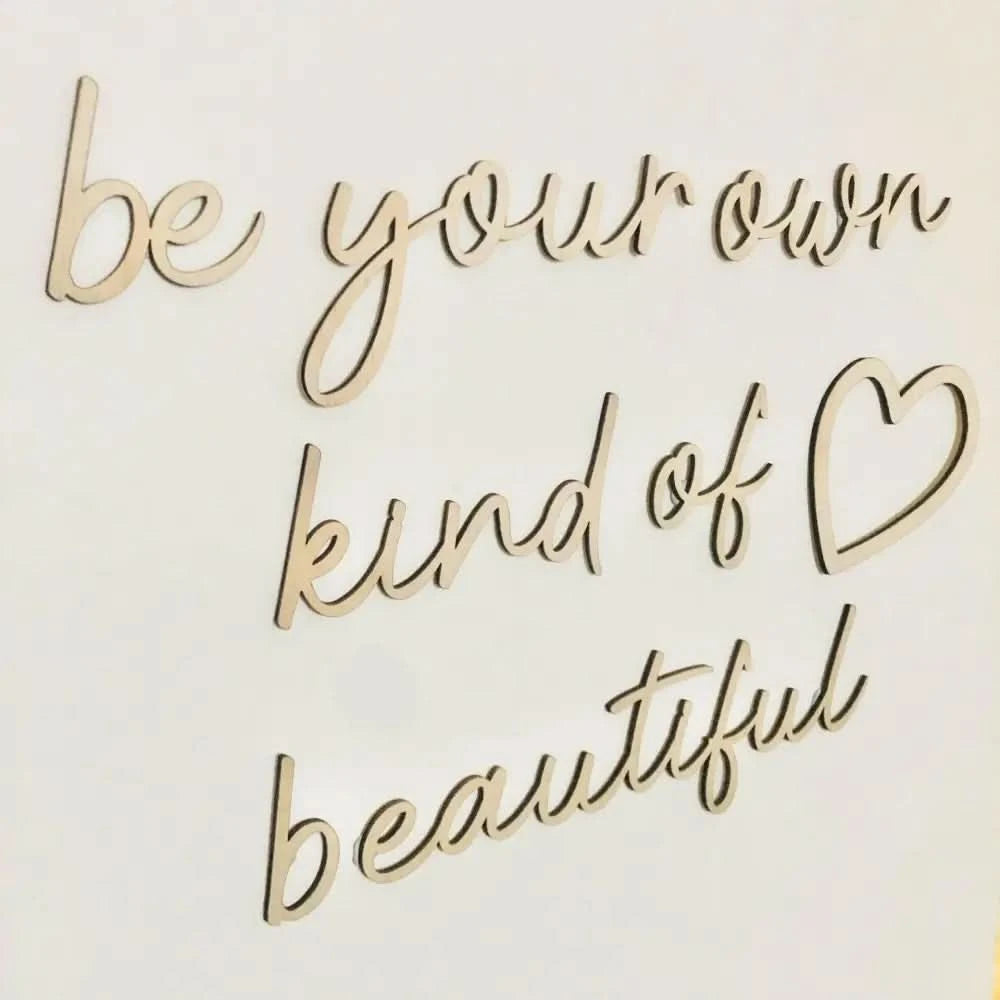 be your own
kind of
beautiful